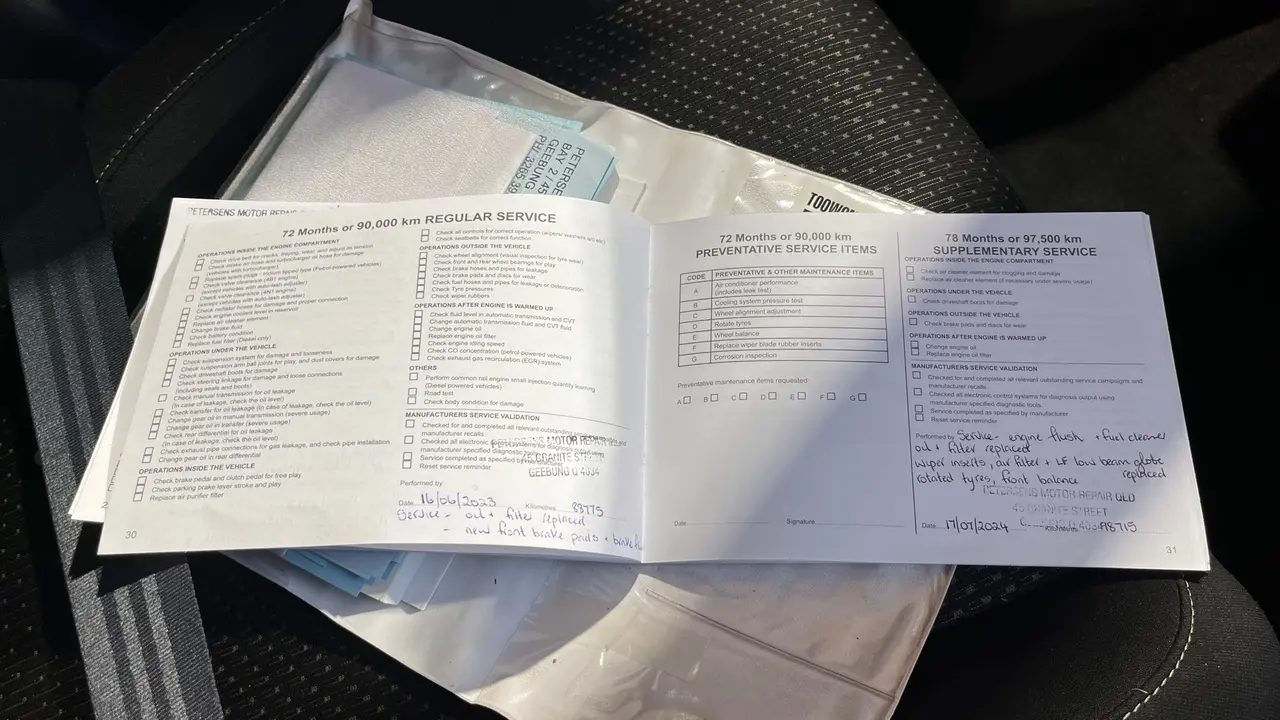 PETERSENS MOTOR REPAIR
72 Months or 90,000 km REGULAR SERVICE
OPERATIONS INSIDE THE ENGINE COMPARTMENT
Check drive belt for cracks, fraying, wear, and adjust its tension
Check intake air hose and turbocharger oil hose for damage
(vehicles with turbocharger)
Replace spark plugs - Iridium tipped type (Petrol-powered vehicles)
Check valve clearance (4B1 engine)
(except vehicles with auto-lash adjuster)
Check valve clearance (4N1 engine)
(except vehicles with auto-lash adjuster)
Check radiator hoses for damage and proper connection
Check engine coolant level in reservoir
Replace air cleaner element
Change brake fluid
Check battery condition
Replace fuel filter (Diesel only)
OPERATIONS UNDER THE VEHICLE
Check suspension system for damage and looseness
Check suspension arm ball joints for play, and dust covers for damage
Check driveshaft boots for damage
Check steering linkage for damage and loose connections
(including seals and boots)
Check manual transmission for oil leakage
(In case of leakage, check the oil level)
Check transfer for oil leakage (In case of leakage, check the oil level)
Change gear oil in manual transmission (severe usage)
Change gear oil in transfer (severe usage)
Check rear differential for oil leakage
(In case of leakage, check the oil level)
Check exhaust pipe connections for gas leakage, and check pipe installation
Change gear oil in rear differential
OPERATIONS INSIDE THE VEHICLE
Check brake pedal and clutch pedal for free play
Check parking brake lever stroke and play
Replace air purifier filter
30
Check all controls for correct operation (wipers/ washers etc)
Check seatbelts for correct function
OPERATIONS OUTSIDE THE VEHICLE
Check wheel alignment (visual inspection for tyre wear)
Check front and rear wheel bearings for play
Check brake hoses and pipes for leakage
Check brake pads and discs for wear
Check fuel hoses and pipes for leakage or deterioration
Check Tyre pressures
Check wiper rubbers
OPERATIONS AFTER ENGINE IS WARMED UP
Check fluid level in automatic transmission and CVT
Change automatic transmission fluid and CVT fluid
Change engine oil
Replace engine oil filter
Check engine idling speed
Check CO concentration (petrol-powered vehicles)
Check exhaust gas recirculation (EGR) system
OTHERS
Perform common rail engine small injection quantity learning
(Diesel powered vehicles)
Road test
Check body condition for damage
MANUFACTURERS SERVICE VALIDATION
Checked for and completed all relevant outstanding service
manufacturer recalls.
Checked all electronic control systems for diagnosis output using
manufacturer specified diagnostic tools.
Service completed as specified by manufacturer
Reset service reminder
PETERSENS MOTOR REPAIR
45 GRANITE STREET
GEEBUNG Q 4034
Performed by
Date 16/06/2023 Kilometres 88775
Service - oil + filter replaced
- new front brake pads + brake
72 Months or 90,000 km
PREVENTATIVE SERVICE ITEMS
CODE PREVENTATIVE & OTHER MAINTENANCE ITEMS
A Air conditioner performance
(includes leak test)
B Cooling system pressure test
C Wheel alignment adjustment
D Rotate tyres
E Wheel balance
F Replace wiper blade rubber inserts
G Corrosion inspection
Preventative maintenance items requested:
A B C D E F G
Date Signature
78 Months or 97,500 km
SUPPLEMENTARY SERVICE
OPERATIONS INSIDE THE ENGINE COMPARTMENT
Check air cleaner element for clogging and damage
Replace air cleaner element (if necessary under severe usage)
OPERATIONS UNDER THE VEHICLE
Check driveshaft boots for damage
OPERATIONS OUTSIDE THE VEHICLE
Check brake pads and discs for wear
OPERATIONS AFTER ENGINE IS WARMED UP
Change engine oil
Replace engine oil filter
MANUFACTURERS SERVICE VALIDATION
Checked for and completed all relevant outstanding service campaigns and
manufacturer recalls.
Checked all electronic control systems for diagnosis output using
manufacturer specified diagnostic tools.
Service completed as specified by manufacturer
Reset service reminder
Performed by Service - engine flush + fuel cleaner
oil + filter replaced
wiper inserts, air filter + LF low beam globe
replaced
rotated tyres, front balance
PETERSENS MOTOR REPAIR QLD
45 GRANITE STREET
Date 17/07/2024 Kilometres 98715
31
PETERSE
BAY 2/45
GEEBUNG
PH/ 3265 39
TOOWO